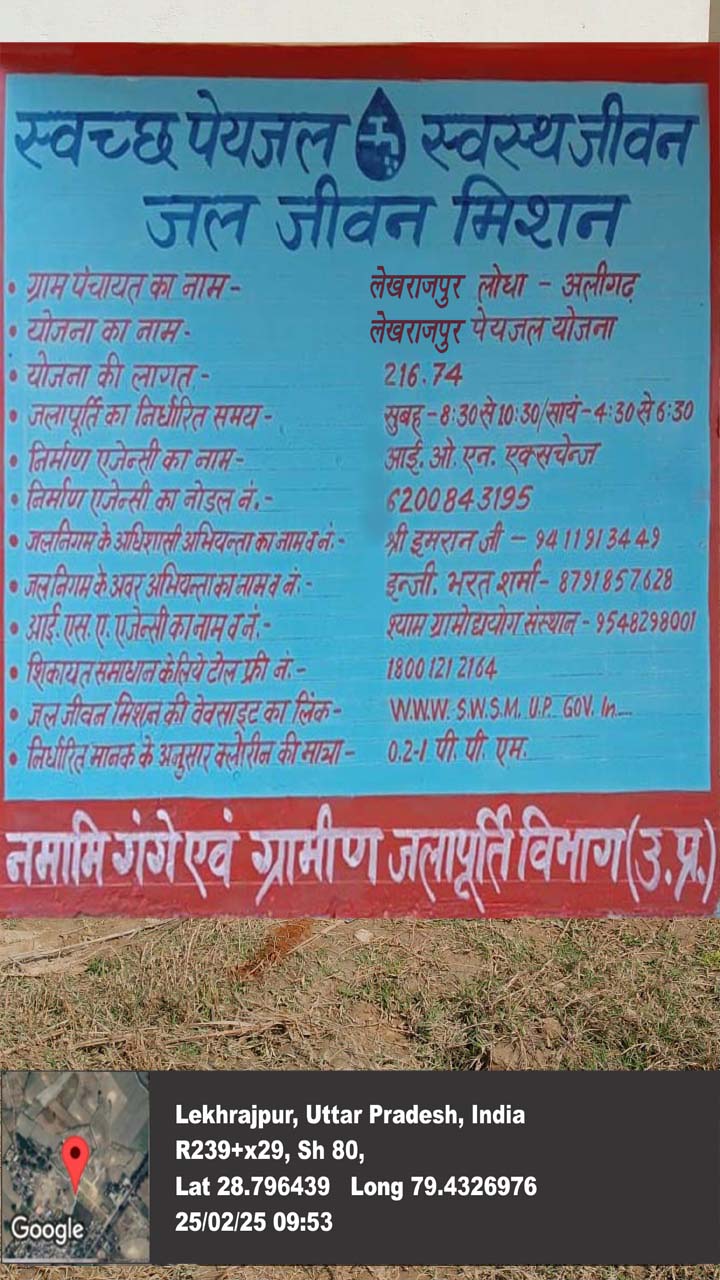 स्वच्छ पेयजल स्वस्थ जीवन
जल जीवन मिशन
• ग्राम पंचायत का नाम - लेखराजपुर लोधा - अलीगढ़
• योजना का नाम - लेखराजपुर पेयजल योजना
• योजना की लागत - 216.74
• जलापूर्ति का निर्धारित समय - सुबह - 8:30 से 10:30/सायं - 4:30 से 6:30
• निर्माण एजेन्सी का नाम - आई. ओ. एन. एक्सचेन्ज
• निर्माण एजेन्सी का नोडल नं. - 6200843195
• जलनिगम के अधिशासी अभियन्ता का नाम व नं. - श्री इमरान जी - 9411913449
• जलनिगम के अवर अभियन्ता का नाम व नं. - इन्जी. भरत शर्मा - 8791857628
• आई. एस. ए. एजेन्सी का नाम व नं. - श्याम ग्रामोद्ययोग संस्थान - 9548298001
• शिकायत समाधान के लिये टोल फ्री नं. - 1800 121 2164
• जल जीवन मिशन की वेवसाइट का लिंक - W.W.W. S.W.S.M. U.P. GOV. In
• निर्धारित मानक के अनुसार क्लोरीन की मात्रा - 0.2-1 पी. पी. एम.
नमामि गंगे एवं ग्रामीण जलापूर्ति विभाग (उ.प्र.)
Lekhrajpur, Uttar Pradesh, India
R239+x29, Sh 80,
Lat 28.796439 Long 79.4326976
25/02/25 09:53
Google